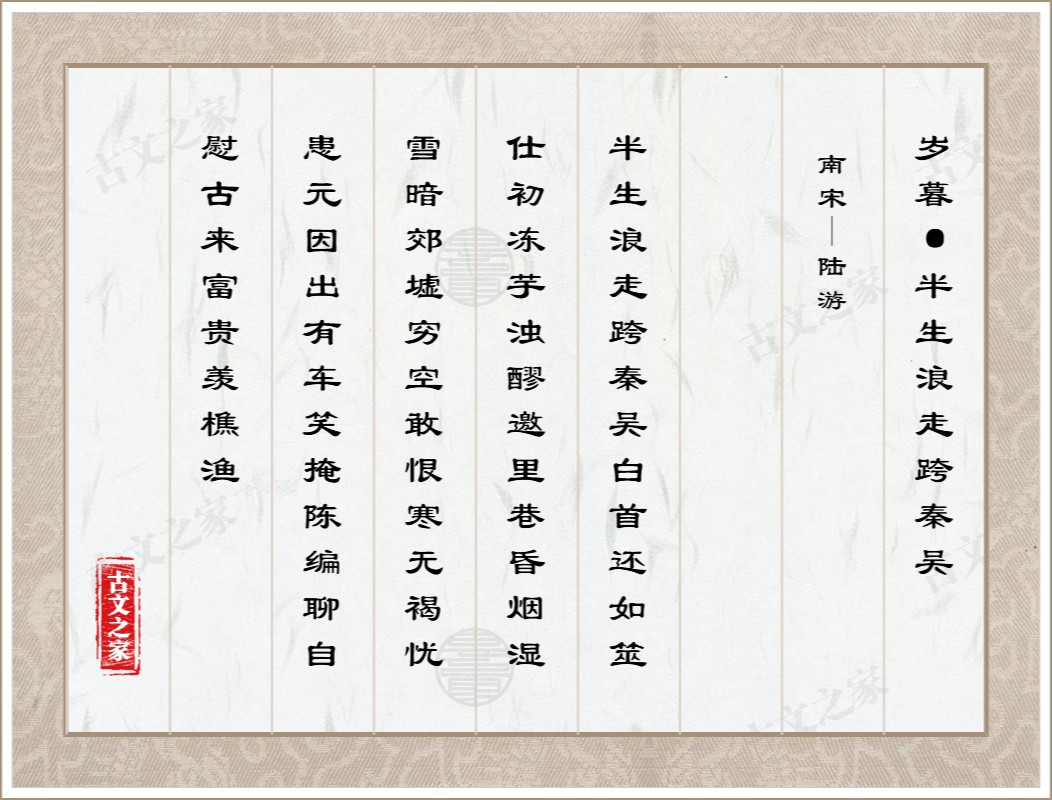 岁暮●半生浪走跨秦吴
南宋—陆游
半生浪走跨秦吴白首还如筮
仕初冻芋浊醪邀里巷昏烟湿
雪暗郊墟穷空敢恨寒无褐忧
患元因出有车笑掩陈编聊自
慰古来富贵羡樵渔
古文之家
古文之家
古文之家
古文之家
古文之家